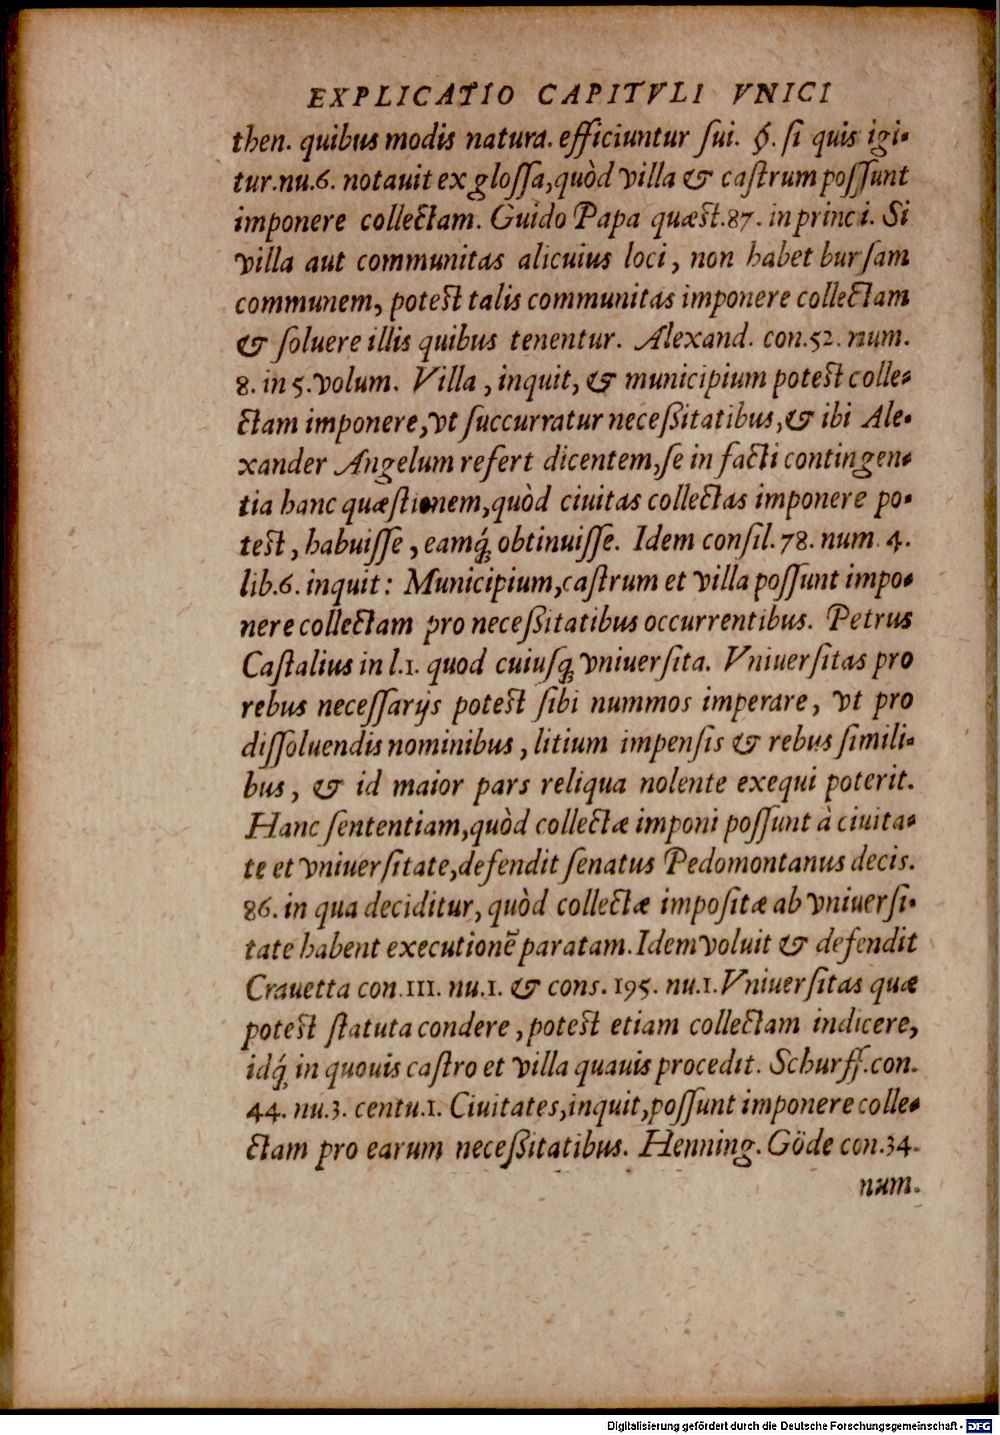 EXPLICATIO CAPITVLI VNICI
then. quibus modis natura. efficiuntur sui. §. si quis igi-
tur. nu. 6. notauit ex glossa, quòd villa & castrum possunt
imponere collectam. Guido Papa quæst. 87. in princi. Si
villa aut communitas alicuius loci, non habet bursam
communem, potest talis communitas imponere collectam
& soluere illis quibus tenentur. Alexand. con. 52. num.
8. in 5. volum. Villa, inquit, & municipium potest colle-
ctam imponere, vt succurratur necessitatibus, & ibi Ale-
xander Angelum refert dicentem, se in facti contingen-
tia hanc quæstionem, quòd ciuitas collectas imponere po-
test, habuisse, eamq́; obtinuisse. Idem consil. 78. num. 4.
lib. 6. inquit: Municipium, castrum et villa possunt impo-
nere collectam pro necessitatibus occurrentibus. Petrus
Castalius in l. 1. quod cuiusq; vniuersita. Vniuersitas pro
rebus necessarijs potest sibi nummos imperare, vt pro
dissoluendis nominibus, litium impensis & rebus simili-
bus, & id maior pars reliqua nolente exequi poterit.
Hanc sententiam, quòd collectæ imponi possunt à ciuita-
te et vniuersitate, defendit senatus Pedomontanus decis.
86. in qua deciditur, quòd collectæ impositæ ab vniuersi-
tate habent executionẽ paratam. Idem voluit & defendit
Crauetta con. 111. nu. 1. & cons. 195. nu. 1. Vniuersitas quæ
potest statuta condere, potest etiam collectam indicere,
idq́; in quouis castro et villa quauis procedit. Schurff. con.
44. nu. 3. centu. 1. Ciuitates, inquit, possunt imponere colle-
ctam pro earum necessitatibus. Henning. Göde con. 34.
num.
Digitalisierung gefördert durch die Deutsche Forschungsgemeinschaft - DFG